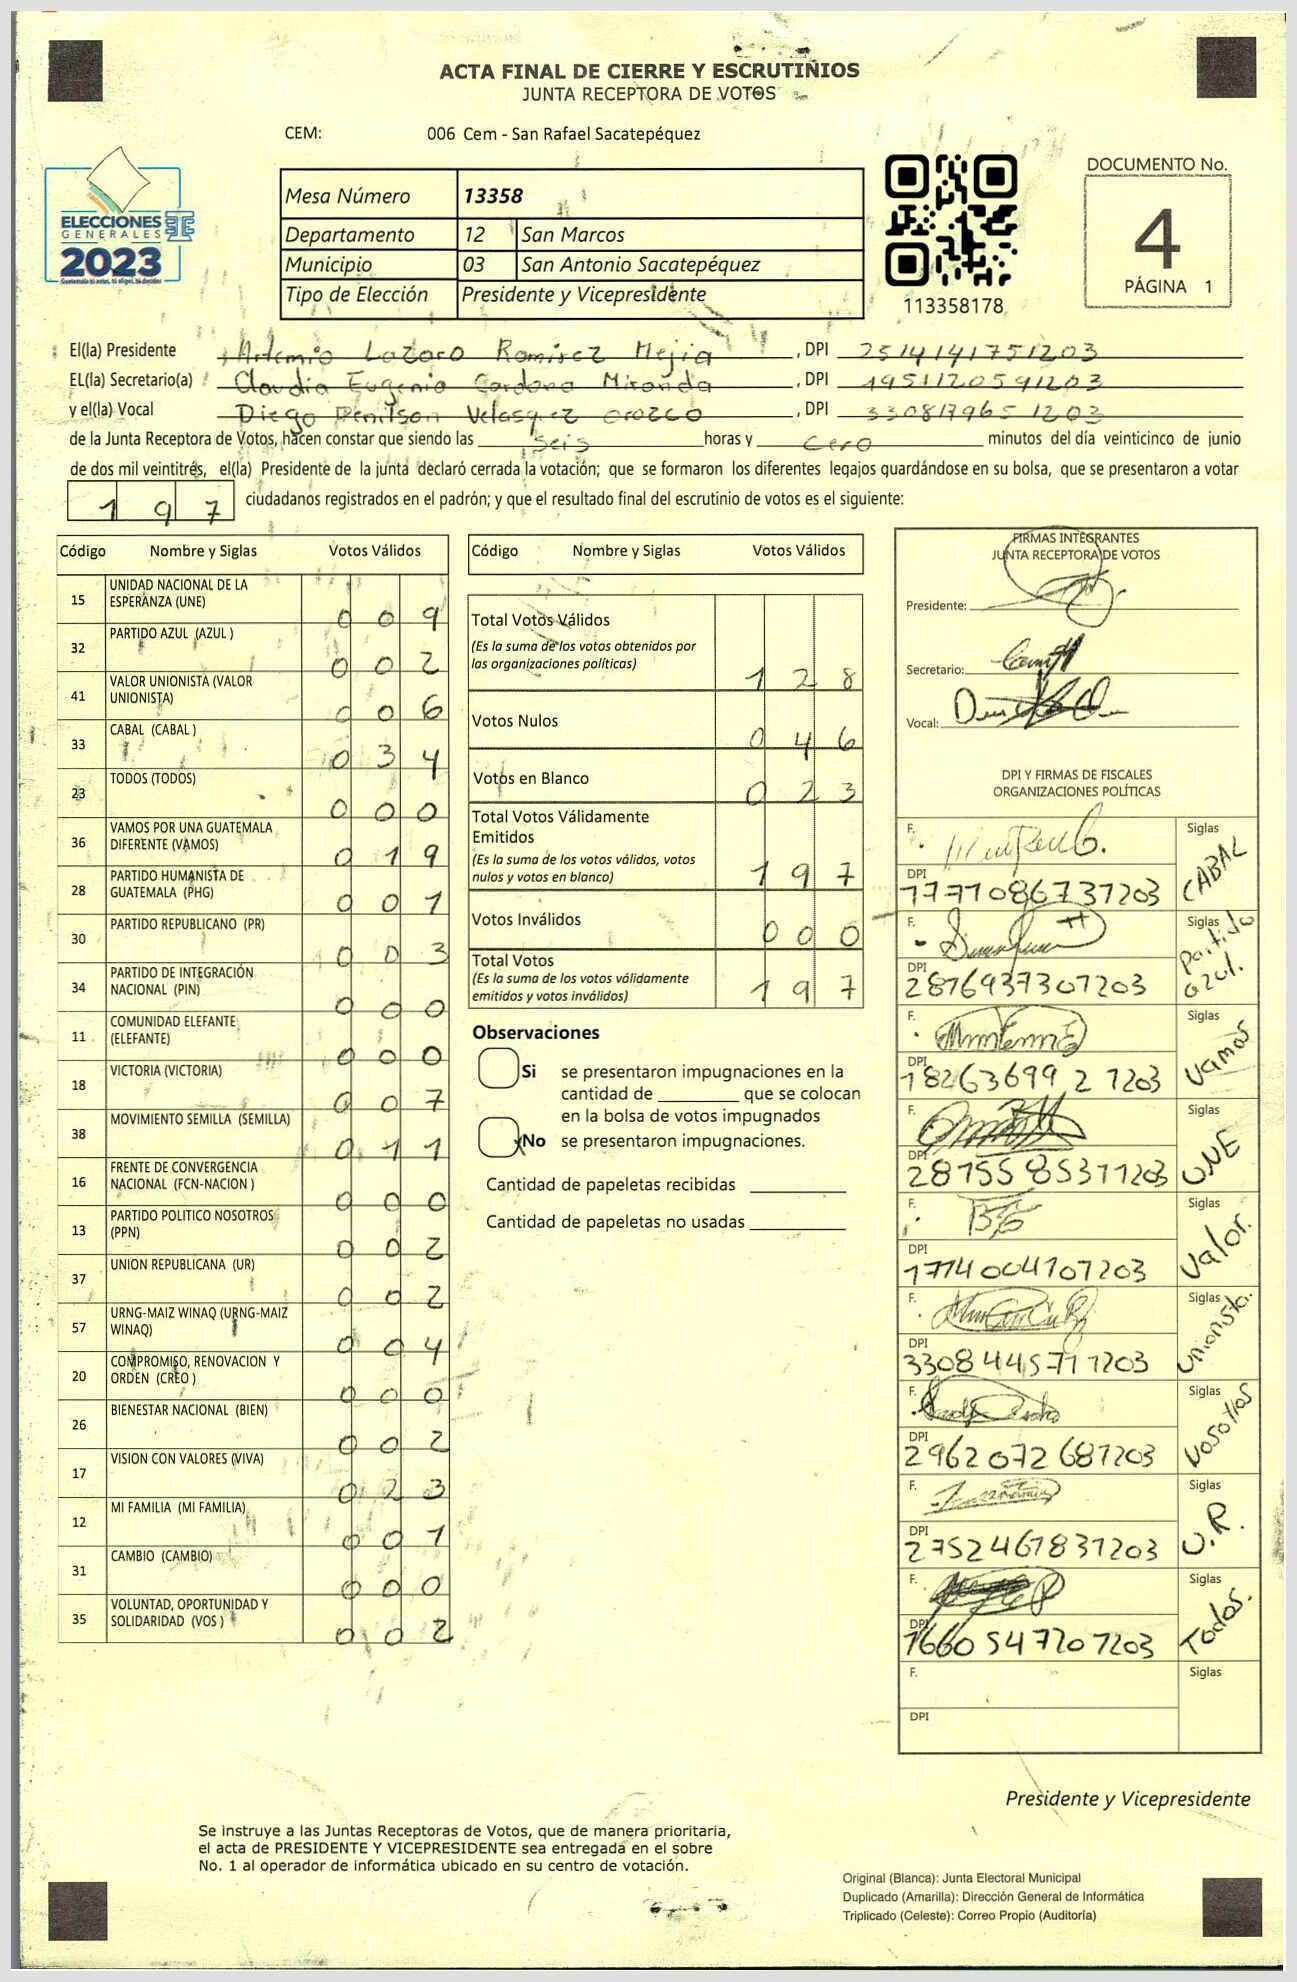 ACTA FINAL DE CIERRE Y ESCRUTINIOS
JUNTA RECEPTORA DE VOTOS
CEM: 006 Cem - San Rafael Sacatepéquez
ELECCIONES
GENERALES
2023
Mesa Número 13358
Departamento 12 San Marcos
Municipio 03 San Antonio Sacatepéquez
Tipo de Elección Presidente y Vicepresidente
113358178
DOCUMENTO No.
4
PÁGINA 1
El(la) Presidente Artemio Lazaro Ramirez Mejia, DPI 2514141751203
EL(la) Secretario(a) Claudia Eugenia Cardona Miranda, DPI 1951120591203
y el(la) Vocal Diego Denilson Velasquez orozco, DPI 3308179651203
de la Junta Receptora de Votos, hacen constar que siendo las seis horas y cero minutos del día veinticinco de junio
de dos mil veintitrés, el(la) Presidente de la junta declaró cerrada la votación; que se formaron los diferentes legajos guardándose en su bolsa, que se presentaron a votar
197 ciudadanos registrados en el padrón; y que el resultado final del escrutinio de votos es el siguiente:
Código Nombre y Siglas Votos Válidos
15 UNIDAD NACIONAL DE LA ESPERANZA (UNE) 009
32 PARTIDO AZUL (AZUL ) 002
41 VALOR UNIONISTA (VALOR UNIONISTA) 006
33 CABAL (CABAL ) 034
23 TODOS (TODOS) 000
36 VAMOS POR UNA GUATEMALA DIFERENTE (VAMOS) 019
28 PARTIDO HUMANISTA DE GUATEMALA (PHG) 001
30 PARTIDO REPUBLICANO (PR) 003
34 PARTIDO DE INTEGRACIÓN NACIONAL (PIN) 000
11 COMUNIDAD ELEFANTE (ELEFANTE) 000
18 VICTORIA (VICTORIA) 007
38 MOVIMIENTO SEMILLA (SEMILLA) 011
16 FRENTE DE CONVERGENCIA NACIONAL (FCN-NACION ) 000
13 PARTIDO POLITICO NOSOTROS (PPN) 002
37 UNION REPUBLICANA (UR) 002
57 URNG-MAIZ WINAQ (URNG-MAIZ WINAQ) 004
20 COMPROMISO, RENOVACION Y ORDEN (CREO ) 000
26 BIENESTAR NACIONAL (BIEN) 002
17 VISION CON VALORES (VIVA) 023
12 MI FAMILIA (MI FAMILIA) 001
31 CAMBIO (CAMBIO) 000
35 VOLUNTAD, OPORTUNIDAD Y SOLIDARIDAD (VOS ) 002
Código Nombre y Siglas Votos Válidos
Total Votos Válidos 128
(Es la suma de los votos obtenidos por
las organizaciones políticas)
Votos Nulos 046
Votos en Blanco 023
Total Votos Válidamente
Emitidos
(Es la suma de los votos válidos, votos
nulos y votos en blanco) 197
Votos Inválidos 000
Total Votos
(Es la suma de los votos válidamente
emitidos y votos inválidos) 197
Observaciones
Si se presentaron impugnaciones en la
cantidad de ________ que se colocan
en la bolsa de votos impugnados
x No se presentaron impugnaciones.
Cantidad de papeletas recibidas
Cantidad de papeletas no usadas
FIRMAS INTEGRANTES
JUNTA RECEPTORA DE VOTOS
Presidente:
Secretario:
Vocal:
DPI Y FIRMAS DE FISCALES
ORGANIZACIONES POLÍTICAS
F. Siglas CABAL
DPI 1771086731203
F. Siglas partido azul.
DPI 2876937307203
F. Siglas Vamos
DPI 1826369921203
F. Siglas UNE
DPI 2875585311203
F. Siglas Valor.
DPI 1714004101203
F. Siglas Unionista.
DPI 3308445711203
F. Siglas Nosotros
DPI 2962072681203
F. Siglas U.R.
DPI 2752467831203
F. Siglas Todos.
DPI 1660547201203
F. Siglas
DPI
Presidente y Vicepresidente
Se instruye a las Juntas Receptoras de Votos, que de manera prioritaria,
el acta de PRESIDENTE Y VICEPRESIDENTE sea entregada en el sobre
No. 1 al operador de informática ubicado en su centro de votación.
Original (Blanca): Junta Electoral Municipal
Duplicado (Amarilla): Dirección General de Informática
Triplicado (Celeste): Correo Propio (Auditoría)